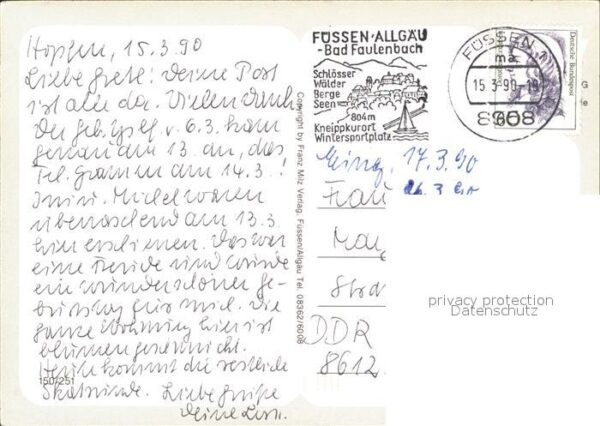 Hopfen, 15.3.90
Liebe Grete! Deine Post
ist alle da. Vielen Dank
Der geb. v. 6.3. kam
genau am 13. an, das
Telegramm am 14.3.!
u. Michel waren
überraschend am 13.3.
hier erschienen. Das war
eine Freude und wurde
ein wunderschöner Ge-
burtstag für mich. Die
ganze Wohnung hier ist
blumengeschmückt.
Heute kommt die restliche
Skatrunde. Liebe Grüße
Deine
150/251
Copyright by Franz Milz Verlag, Füssen/Allgäu Tel. 08362/6008
FÜSSEN·ALLGÄU
-Bad Faulenbach
Schlösser
Wälder
Berge
Seen
804m
Kneippkurort
Wintersportplatz
FÜSSEN
15.3.90-19
8958
Deutsche Bundespost
Eing. 17.3.90
Frau
DDR
8612
privacy protection
Datenschutz